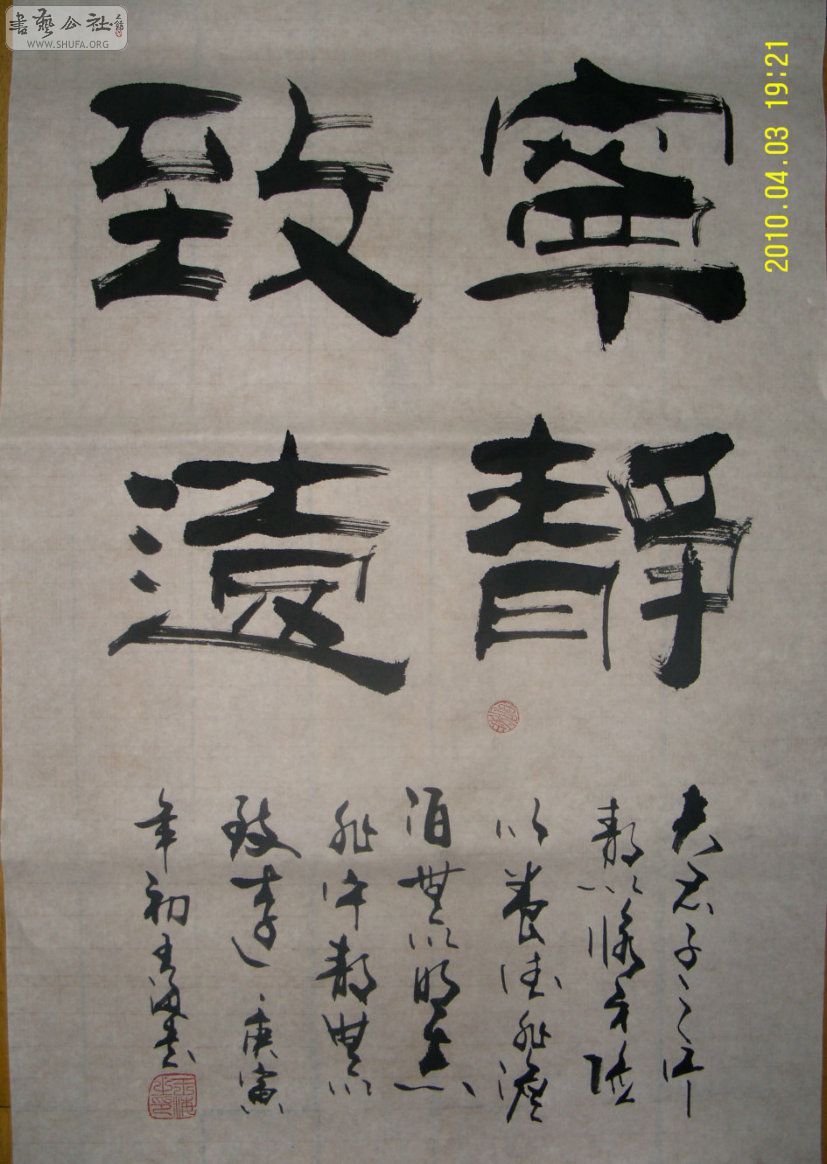 書藝公社
WWW.SHUFA.ORG
2010.04.03 19:21
寧靜
致遠
夫君子之行
靜以修身儉
以養德非澹
泊無以明志
非寧靜無以
致遠庚寅
年初海書